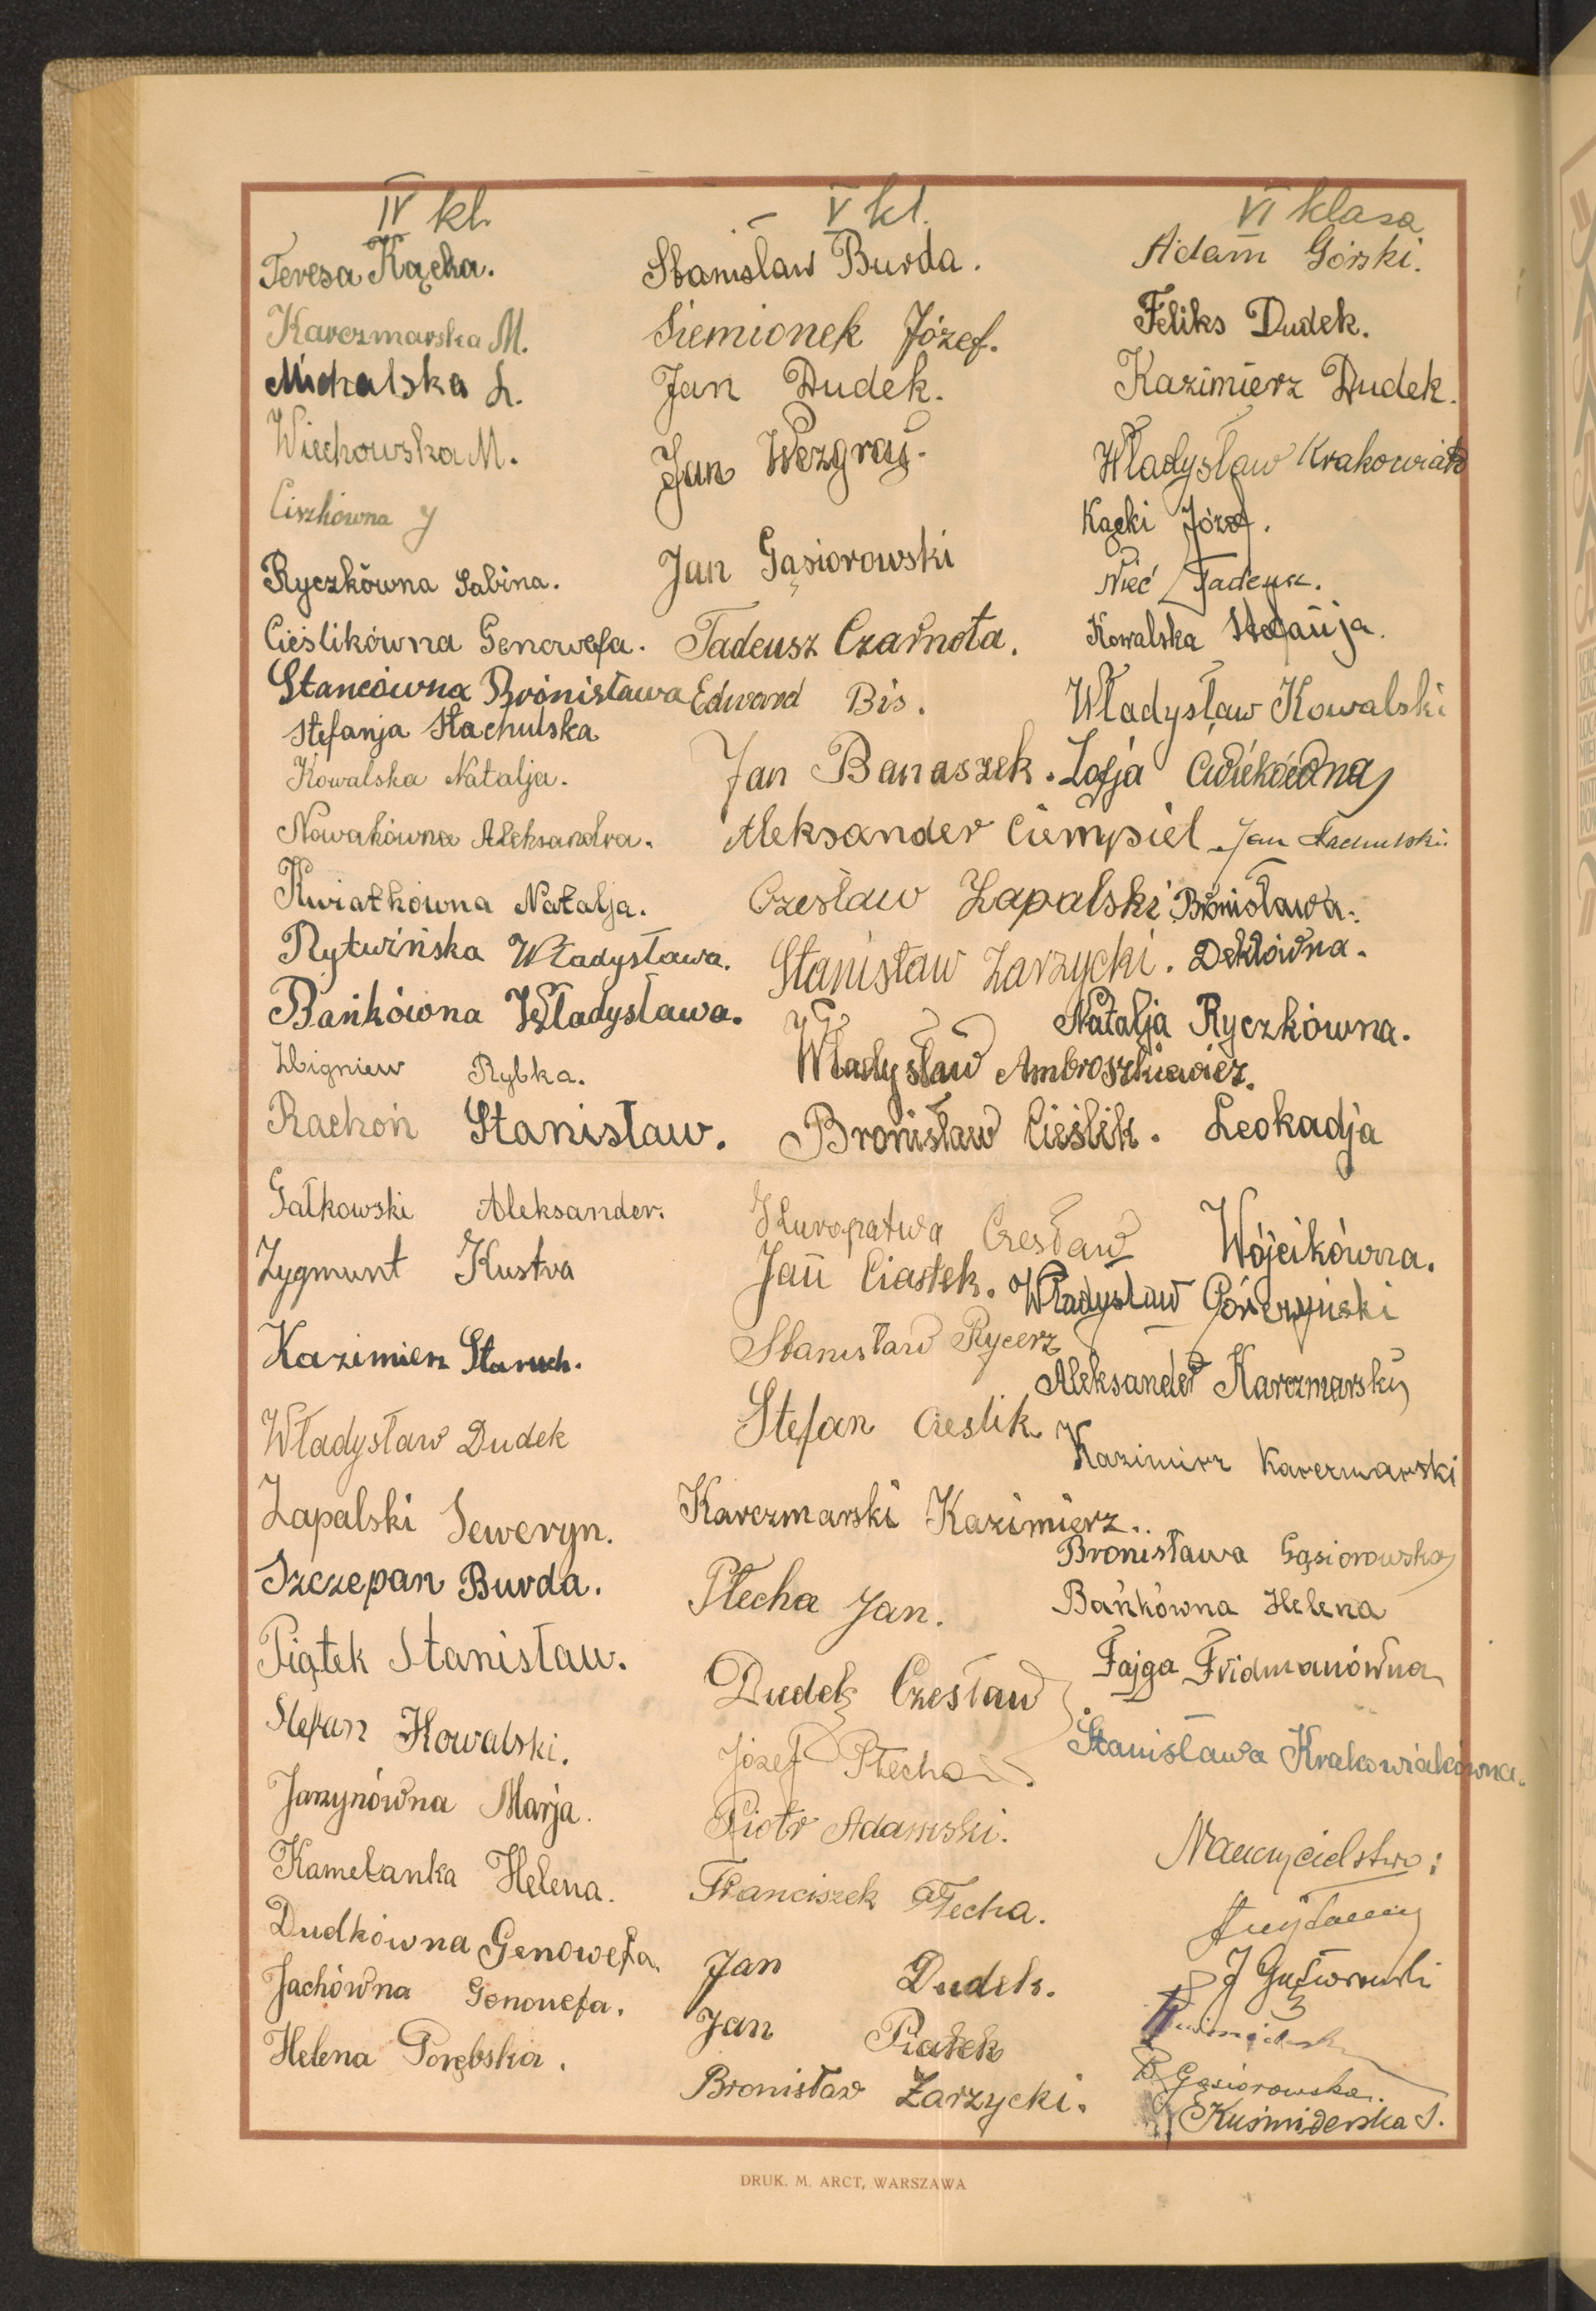 IV kl.
Teresa Kącka.
Karczmarska M.
Michalska L.
Wiechowska M.
Ciszkówna J
Ryczkówna Sabina.
Cieślikówna Genowefa.
Stancówna Bronisława
Stefanja Stachulska
Kowalska Natalja.
Nowakówna Aleksandra.
Kwiatkówna Natalja.
Rytwińska Władysława.
Bańkówna Władysława.
Zbigniew Rybka.
Rachoń Stanisław.
Gałkowski Aleksander.
Zygmunt Kustra
Kazimierz Staruch.
Władysław Dudek
Zapalski Seweryn.
Szczepan Burda.
Piątek Stanisław.
Stefan Kowalski.
Jarzynówna Marja.
Kamelanka Helena.
Dudkówna Genowefa.
Jachówna Genowefa.
Helena Porębska.
V kl.
Stanisław Burda.
Siemionek Józef.
Jan Dudek.
Jan Wezgraj.
Jan Gąsiorowski
Tadeusz Czarnota.
Edward Bis.
Jan Banaszek.
Aleksander Ciempiel
Czesław Zapalski
Stanisław Zarzycki.
Władysław Ambroszkiewicz.
Bronisław Cieślik.
Kuropatwa Czesław
Jan Ciastek.
Stanisław Rycerz
Stefan Cieslik
Karczmarski Kazimierz.
Płecha Jan.
Dudek Czesław
Józef Płecha
Piotr Adamski.
Franciszek Płecha.
Jan Dudek.
Jan Piątek
Bronisław Zarzycki.
VI klasa
Adam Górski.
Feliks Dudek.
Kazimierz Dudek.
Władysław Krakowiak
Kącki Józef.
Nieć Tadeusz.
Kowalska Stefanja.
Władysław Kowalski
Zofja Ćwiekówna
Jan Stachulski
Bronisława
Dekłówna.
Natalja Ryczkówna.
Leokadja
Wójcikówna.
Władysław Górczyński
Aleksander Karczmarski
Kazimierz Karczmarski
Bronisława Gąsiorowska
Bańkówna Helena
Fajga Fridmanówna
Stanisława Krakowiakówna.
Nauczycielstwo:
B Gąsiorowska.
Kuśmiderska S.
DRUK. M. ARCT, WARSZAWA